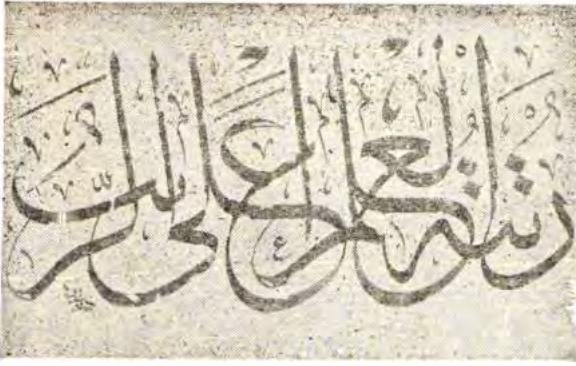 رتبة العلم أعلى الرتب